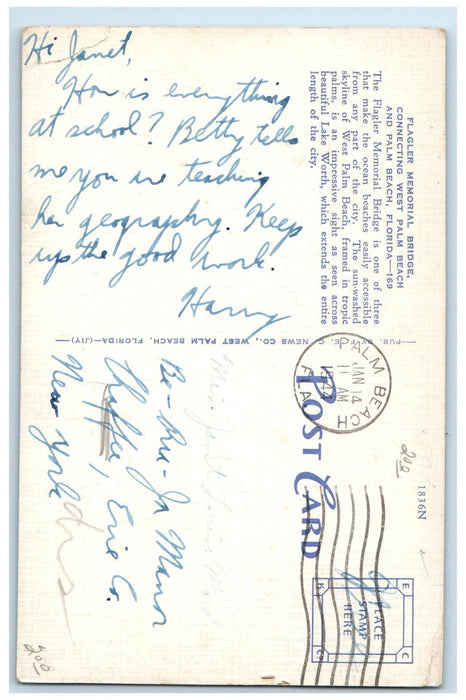 Hi Janet,
How is everything
at school? Betty tells
me you are teaching
her geography. Keep
up the good work.
Harry
FLAGLER MEMORIAL BRIDGE,
CONNECTING WEST PALM BEACH
AND PALM BEACH, FLORIDA—169
The Flagler Memorial Bridge is one of three
that make the ocean beaches easily accessible
from any part of the city. The sun-washed
skyline of West Palm Beach, framed in tropic
palms, is an impressive sight as seen across
beautiful Lake Worth, which extends the entire
length of the city.
C. NEWS CO., WEST PALM BEACH, FLORIDA—(JIY)
PUB. BY F. E.
POST CARD
PALM BEACH
JAN 14
11 AM
FLA
1836N
PLACE
STAMP
HERE
E C
K Co
Miss Janet
Be-Ru-In Manor
Chaffee, Erie Co.
New York
200
200